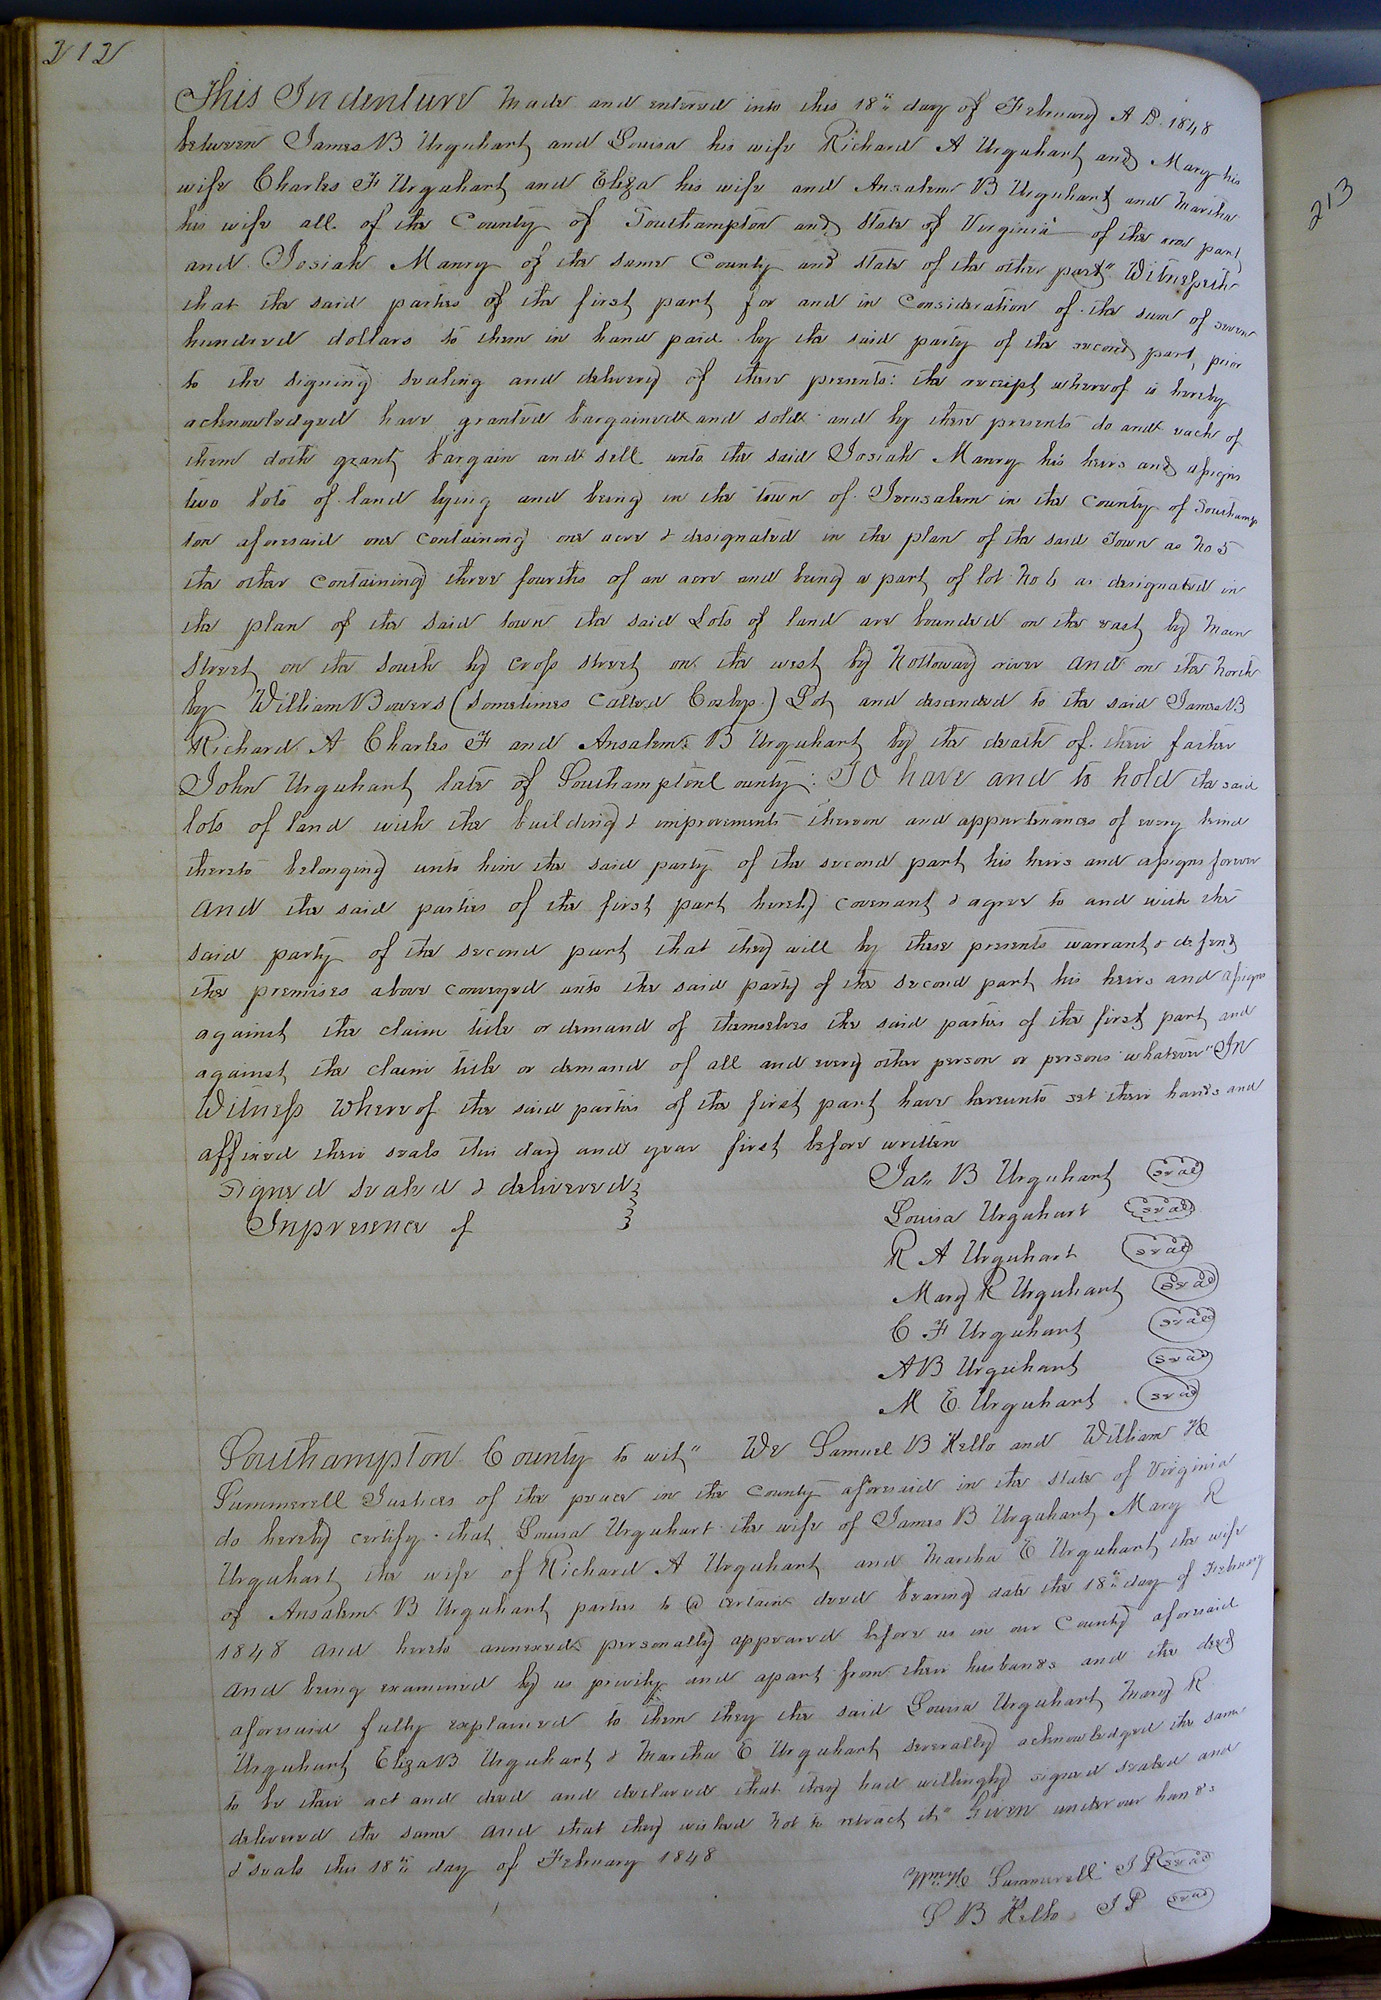 212
This Indenture Made and entered into this 18th day of February A D. 1848
between James B Urquhart and Louisa his wife Richard A Urquhart and Mary his
wife Charles F Urquhart and Eliza his wife and Ansalem B Urquhart and Martha
his wife all of the County of Southampton and State of Virginia of the one part
and Josiah Manry of the same County and state of the other part" Witnesseth
that the said parties of the first part for and in Consideration of the sum of seven
hundred dollars to them in hand paid by the said party of the second part, prior
to the signing sealing and delivery of these presents: the receipt whereof is hereby
acknowledged have granted bargained and sold and by these presents do and each of
them doth grant bargain and sell unto the said Josiah Manry his heirs and assigns
two lots of land lying and being in the town of Jerusalem in the County of Southamp
ton aforesaid one Containing one acre & designated in the plan of the said Town as No 5
the other Containing three fourths of an acre and being a part of lot No 6 as designated in
the plan of the said town the said Lots of land are bounded on the east by Main
Street on the South by cross street on the west by Nottoway river and on the North
by William Bowers (sometimes Called) Lot and descended to the said James B
Richard A Charles F and Ansalem B Urquhart by the death of their father
John Urquhart late of Southampton County: TO have and to hold the said
lots of land with the building & improvements thereon and appurtenances of every kind
thereto belonging unto him the said party of the second part his heirs and assigns forever
and the said parties of the first part hereby covenant & agree to and with the
said party of the second part that they will by these presents warrant & defend
the premises above conveyed unto the said party of the second part his heirs and assigns
against the claim title or demand of themselves the said parties of the first part and
against the claim title or demand of all and every other person or persons whatever" IN
Witness Whereof the said parties of the first part have hereunto set their hands and
affixed their seals this day and year first before written
Signed sealed & delivered
In presence of
Jas B Urquhart seal
Louisa Urquhart seal
R A Urquhart seal
Mary R Urquhart seal
C F Urquhart seal
A B Urquhart seal
M E Urquhart seal
Southampton County to wit" We Samuel B Kello and William H
Summerell Justices of the peace in the County aforesaid in the state of Virginia
do hereby certify that Louisa Urquhart the wife of James B Urquhart Mary R
Urquhart the wife of Richard A Urquhart and Martha E Urquhart the wife
of Ansalem B Urquhart parties to a certain deed bearing date the 18th day of February
1848 and hereto annexed personally appeared before us in our County aforesaid
and being examined by us privily and apart from their husbands and the deed
aforesaid fully explained to them they the said Louisa Urquhart Mary R
Urquhart Eliza B Urquhart & Martha E Urquhart severally acknowledged the same
to be their act and deed and declared that they had willingly signed sealed and
delivered the same and that they wished not to retract it" Given under our hands
& seals this 18th day of February 1848
Wm H Summerell J P seal
S B Kello J P seal
213